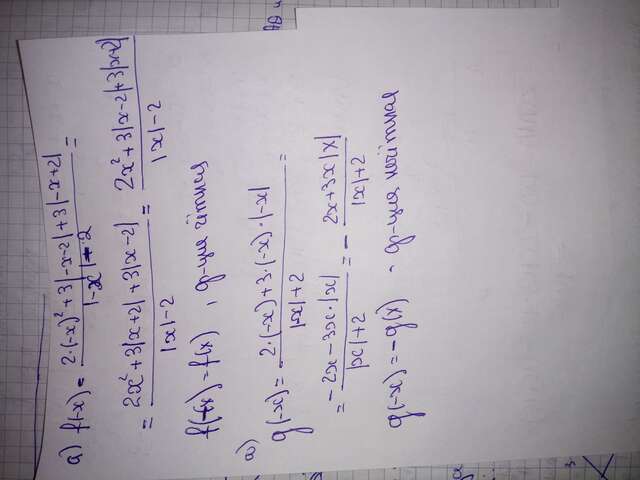 а) f(-x) = (2·(-x)² + 3|-x-2| + 3|-x+2|)/(|-x|-2) =
= (2x² + 3|x+2| + 3|x-2|)/(|x|-2) = (2x² + 3|x-2| + 3|x+2|)/(|x|-2)
f(-x) = f(x), ф-ция чётная
g(-x) = (2·(-x) + 3·(-x)·|-x|)/(|-x|+2) =
= (-2x - 3x·|x|)/(|x|+2) = - (2x + 3x|x|)/(|x|+2)
g(-x) = -g(x), ф-ция нечётная